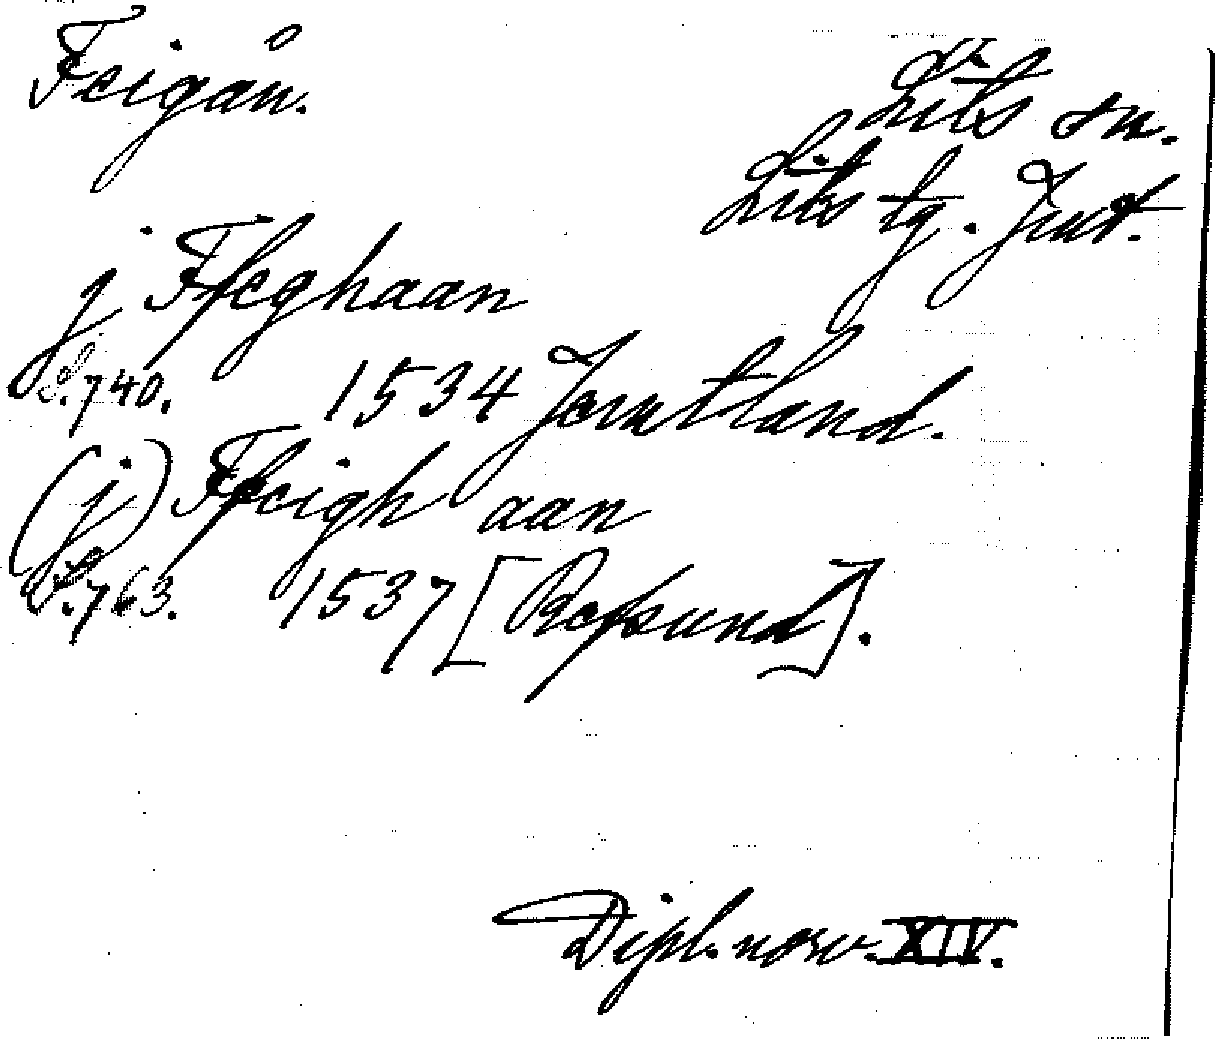 Feigån.
Lits sn.
Lits tg. Jmt.
j Ffeghaan
S.740. 1534 Jemtland.
(j) Ffeigh aan
S.763. 1537 [Refsund].
Dipl. norv. XIV.